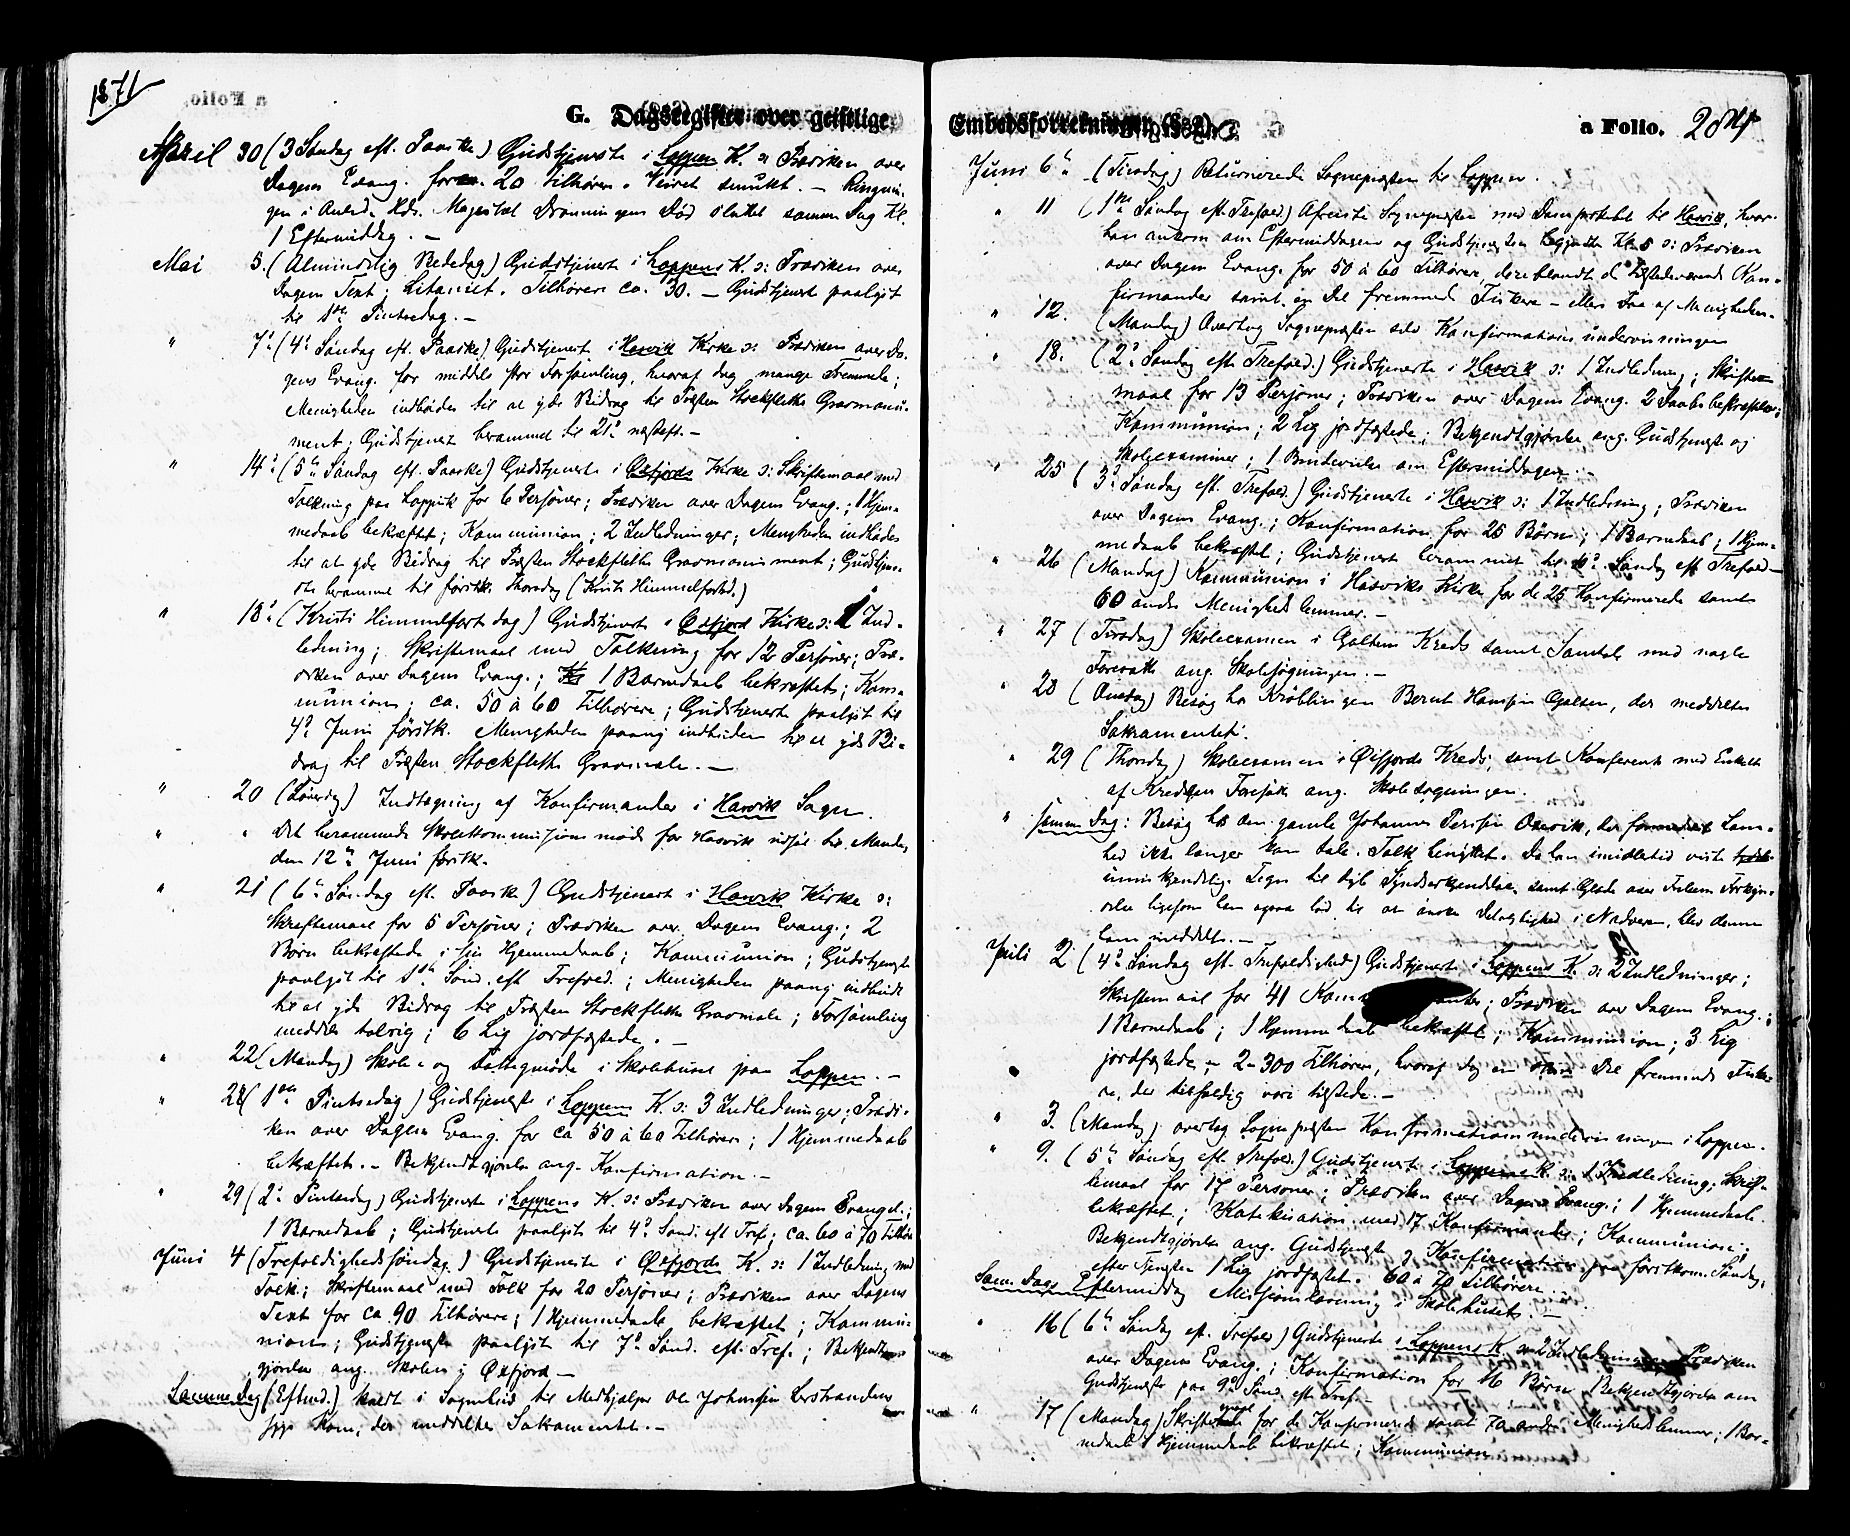 1871
G. Dagsregister over geistlige
April 30 (3 Søndag eft. Paaske) Gudstjeneste i Loppens K. ɔ: Prædiken over
Dagens Evang. for ca. 20 Tilhørere. Veiret smukt. – Ringnin-
gen i Anled. Hds. Majestæt Dronningens Død sluttet samme Dag Kl.
1 Eftermiddag. –
Mai 5. (Almindelig Bededag) Gudstjeneste i Loppens K. ɔ: Prædiken over
Dagens Text; Litaniet. Tilhørere ca. 30. – Gudstjenest paalyst
til 1ste Pintsedag. –
" 7de (4de Søndag eft. Paaske) Gudstjeneste i Hasvik Kirke ɔ: Prædiken over Da-
gens Evang. for middels stor Forsamling, hvoraf dog mange Fremmede;
Menigheden indbødes til at yde Bidrag til Præsten Stockfleths Gravmonu-
ment; Gudstjenest berammet til 21de næsteft. –
" 14de (5te Søndag eft. Paaske) Gudstjeneste i Øxfjords Kirke ɔ: Skriftemaal med
Tolkning paa Lappisk for 6 Personer; Prædiken over Dagens Evang.; 1 Hjem-
medaab bekræftet; Kommunion; 2 Indledninger; Menigheden indbødes
til at yde Bidrag til Præsten Stockfleths Gravmonument; Gudstjene-
ste berammet til førstk. Thorsdag (Kristi Himmelfartsd.)
" 18de (Kristi Himmelfartsdag) Gudstjeneste i Øxfjord Kirke ɔ: 1 Ind-
ledning; Skriftemaal med Tolkning for 12 Personer; Præ-
diken over Dagens Evang.; 1 Barnedaab bekræftet; Kom-
munion; ca. 50 à 60 Tilhørere; Gudstjeneste paalyst til
4de Juni førstk. Menigheden paany indbuden til at yde Bi-
drag til Præsten Stockfleths Gravmæle. –
" 20 (Løverdag) Indtegning af Konfirmander i Hasvik Sogn.
" " Det berammede Skolekommissionsmøde for Hasvik udsat til Mandag
den 12te Juni førstk.
" 21 (6te Søndag eft. Paaske) Gudstjeneste i Hasvik Kirke ɔ:
Skriftemaal for 5 Personer; Prædiken over Dagens Evang.; 2
Børn bekræftede i sin Hjemmedaab; Kommunion; Gudstjeneste
paalyst til 1ste Sønd. eft Trefold.; Menigheden paany indbudt
til at yde Bidrag til Præsten Stockfleths Gravmæle; Forsamling
meddels talrig; 6 Lig jordfæstede. –
" 22 (Mandag) Skole- og Fattigmøde i Skolehuset paa Loppen. –
" 28 (1ste Pintsedag) Gudstjeneste i Loppens K. ɔ: 3 Indledninger; Prædi-
ken over Dagens Evang. for ca 50 à 60 Tilhørere; 1 Hjemmedaab
bekræftet. – Bekjendtgjørelse ang. Konfirmation. –
" 29 (2den Pintsedag) Gudstjeneste i Loppens K. ɔ: Prædiken over Dagens Evangel.;
1 Barnedaab; Gudstjeneste paalyst til 4de Sønd. eft Tref.; ca. 60 à 70 Tilhør.
Juni 4 (Trefoldighedssøndag) Gudstjeneste i Øxfjords K. ɔ: 1 Indledning med
Tolk; Skriftemaal med Tolk for 20 Personer; Prædiken over Dagens
Text for ca. 90 Tilhørere; 1 Hjemmedaab bekræftet; Kommu-
nion; Gudstjeneste paalyst til 7de Sønd. eft. Tref.; Bekjendt-
gjørelse ang. Skolen i Øxfjord. –
Samme Dag (Efterm.) kaldt i Sognebud til Medhjælper Ole Johansen
syge Kone, der meddeltes Sakramentet. –
Embedsforretninger
a Folio. 204
Juni 6te (Tirsdag) Returnerede Sognepræsten til Loppen.
" 11 (1ste Søndag eft. Trefold.) Afreiste Sognepræsten med Dampskibet til Hasvik, hvor-
han ankom om Eftermiddagen og Gudstjenesten begyndte Kl. 5 ɔ: Prædiken
over Dagens Evang. for 50 à 60 Tilhørere, deriblandt de tilstedeværende Kon-
firmander samt en Del fremmede Fiskere – ellers Faa af Menigheden.
" 12. (Mandag) Overtog Sognepræsten selv Konfirmationsundervisningen
" 18. (2den Søndag eft Trefold.) Gudstjeneste i Hasvik ɔ: 1 Indledning; Skrifte-
maal for 13 Personer; Prædiken over Dagens Evang. 2 Daabsbekræftelser;
Kommunion; 2 Lig jordfæstede; Bekjendtgjørelse ang. Gudstjeneste og
Skoleexaminer; 1 Brudevielse om Eftermiddagen. –
" 25 (3de Søndag eft. Trefold.) Gudstjeneste i Hasvik ɔ: 1 Indledning; Prædiken
over Dagens Evang.; Konfirmation for 25 Børn; 1 Barnedaab; 1 Hjem-
medaab bekræftet; Gudstjenest berammet til Søndag eft Trefold. –
" 26 (Mandag) Kommunion i Hasviks Kirke for de 25 Konfirmerede samt
60 andre Menighedslemmer. –
" 27 (Tirsdag) Skoleexamen i Galtens Kreds samt Samtale med nogle
Foresatte ang. Skolesøgningen. –
" 28 (Onsdag) Besøg hos Krøblingen Bernt Hansen Galten, der meddeltes
Sakramentet.
" 29 (Thorsdag) Skoleexamen i Øifjords Kreds, samt Konference med Enkelte
af Kredsens Foresatte ang. Skolesøgningen.
" samme Dag: Besøg hos den gamle Johannes Persen, der
hed ikke længer kan tale. Tolk benyttet. Da han imidlertid viste
umiskjendelig Tegn til dyb Syndserkjendelse, samt Glæde over Forkyn-
delse ligesom han ogsaa lod til at ønske Delagtighed i Nadveren, blev denne
ham meddelt. –
Juli 2 (4de Søndag eft. Trefoldighed) Gudstjeneste i Loppens K. ɔ: 2 Indledninger;
Skriftemaal for 41 Prædiken over Dagens Evang.;
1 Barnedaab; 1 Hjemmedaab bekræftet; Kommunion; 3 Lig
jordfæstede; 2-300 Tilhørere, hvoraf dog en stor Del fremmede Fiske-
re, der tilfældig vare tilstede. –
" 3. (Mandag) overtog Sognepræsten Konfirmationsundervisningen i Loppen.
" 9. (5te Søndag eft. Trefold.) Gudstjeneste i Loppens K. ɔ: 1 Indledning; Skrif-
temaal for 17 Personer; Prædiken over Dagens Evang.; 1 Hjemmedaab
bekræftet; Katekisation med 17 Konfirmander; Kommunion;
Bekjendtgjørelse ang. Gudstjeneste og Konfirmation paa førstkom. Søndag;
efter Tjenesten 1 Lig jordfæstet. 60 à 70 Tilhørere. –
Sam. Dags Eftermiddag Missionslæsning i Skolehuset. –
" 16 (6te Søndag eft. Trefold) Gudstjeneste i Loppens K. ɔ: 2 Indledninger; Prædiken
over Dagens Evang.; Konfirmation for 16 Børn Bekjendtgjørelse om
Gudstjeneste paa 9de Sønd. eft Tref. –
" 17 (Mandag) Skriftemaal for de Konfirmerede samt 70 andre Menighedslemmer; 1 Bar-
nedaab 1 Hjemmedaab bekræftet; Kommunion